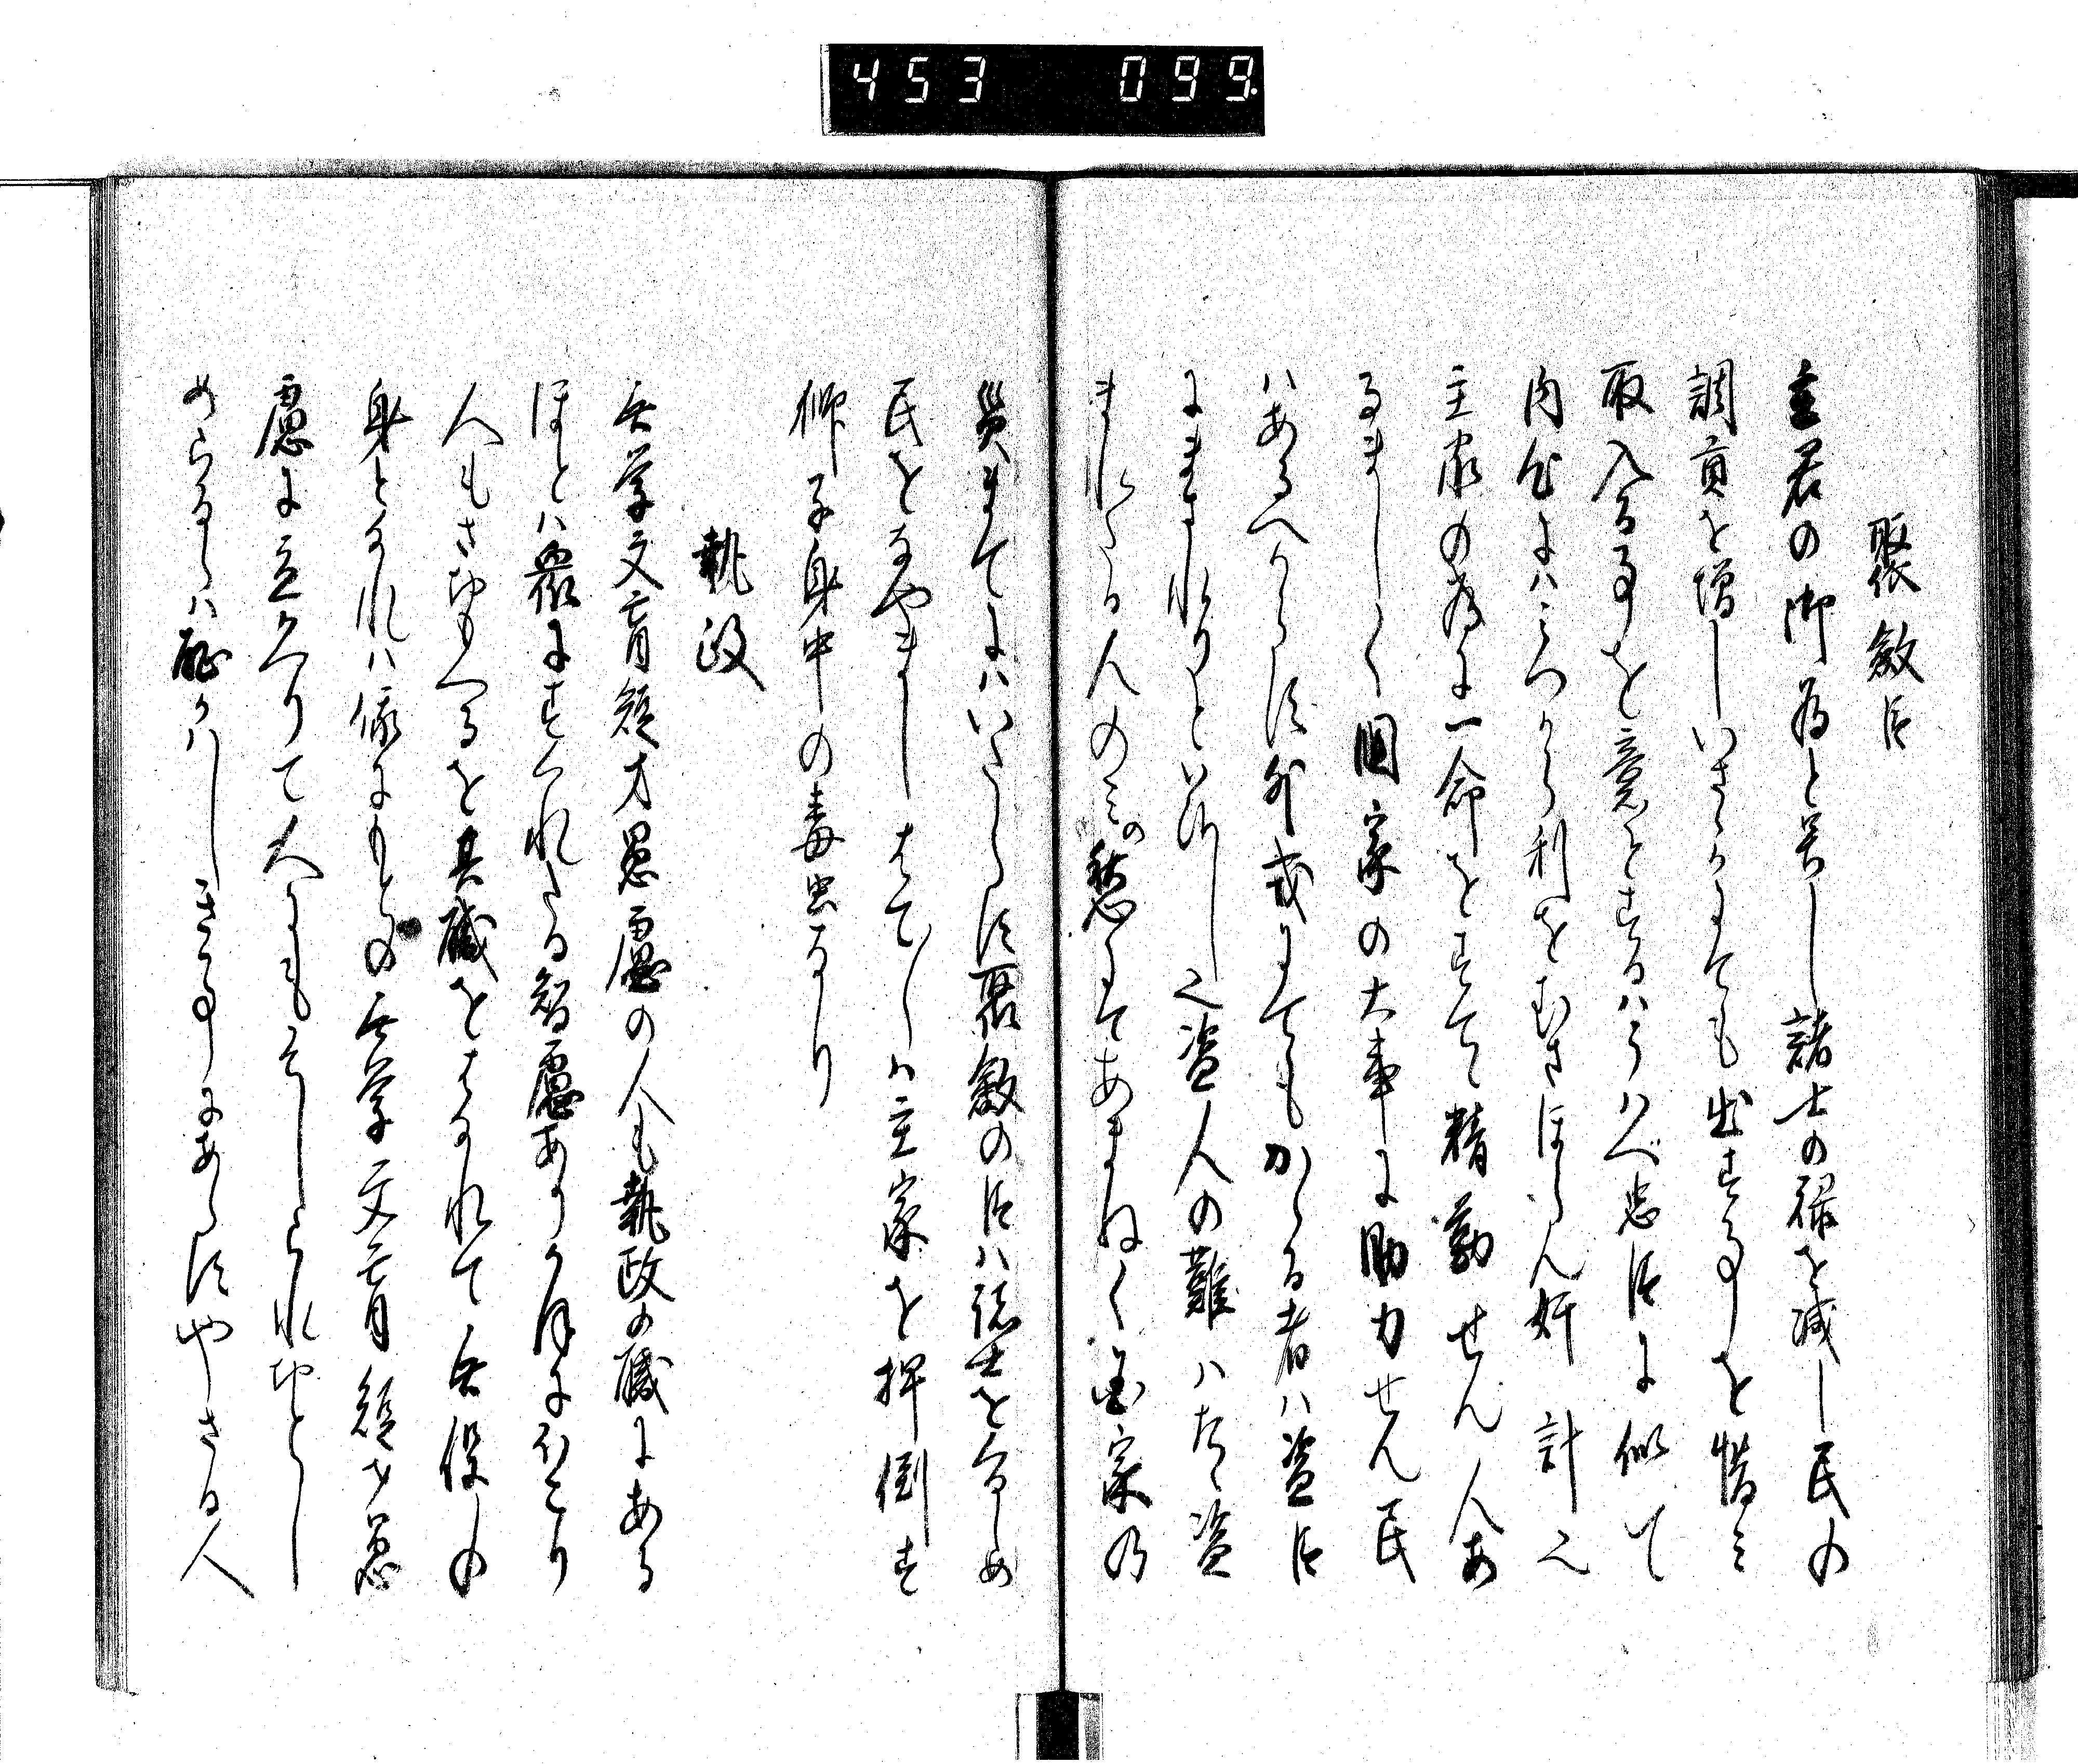 453 099
聚斂臣
主君の御為と号し諸士の禄を減し民の
調貢を増しいさゝかにても出す事を惜み
取入る事を意とするはうはべ忠臣に似て
内心にはみつから利をむさほらん奸計也
主家の為に一命をすて精勤せん人あ
るましく国家の大事に助力せん民
はあるへからす外戎にてもかゝる者は盗臣
にまされりといふへし也盗人の難はたゝ盗
まれたる人のみの愁にてあまねく国家の
災まてにはいたらす聚斂の臣は諸士をくるしめ
民をなやましはてしは主家を押倒す
獅子身中の毒虫なり
執政
無学文盲短才愚慮の人も執政の職にある
ほとは衆にすくれたる智慮ありかほにほこり
人もさおもへるを其職をはなれて無役の
身となれは依にもとの無学文盲短才愚
慮に立かへりて人にもそしられおとし
めらるゝは恥かはしき事にあらすやさる人